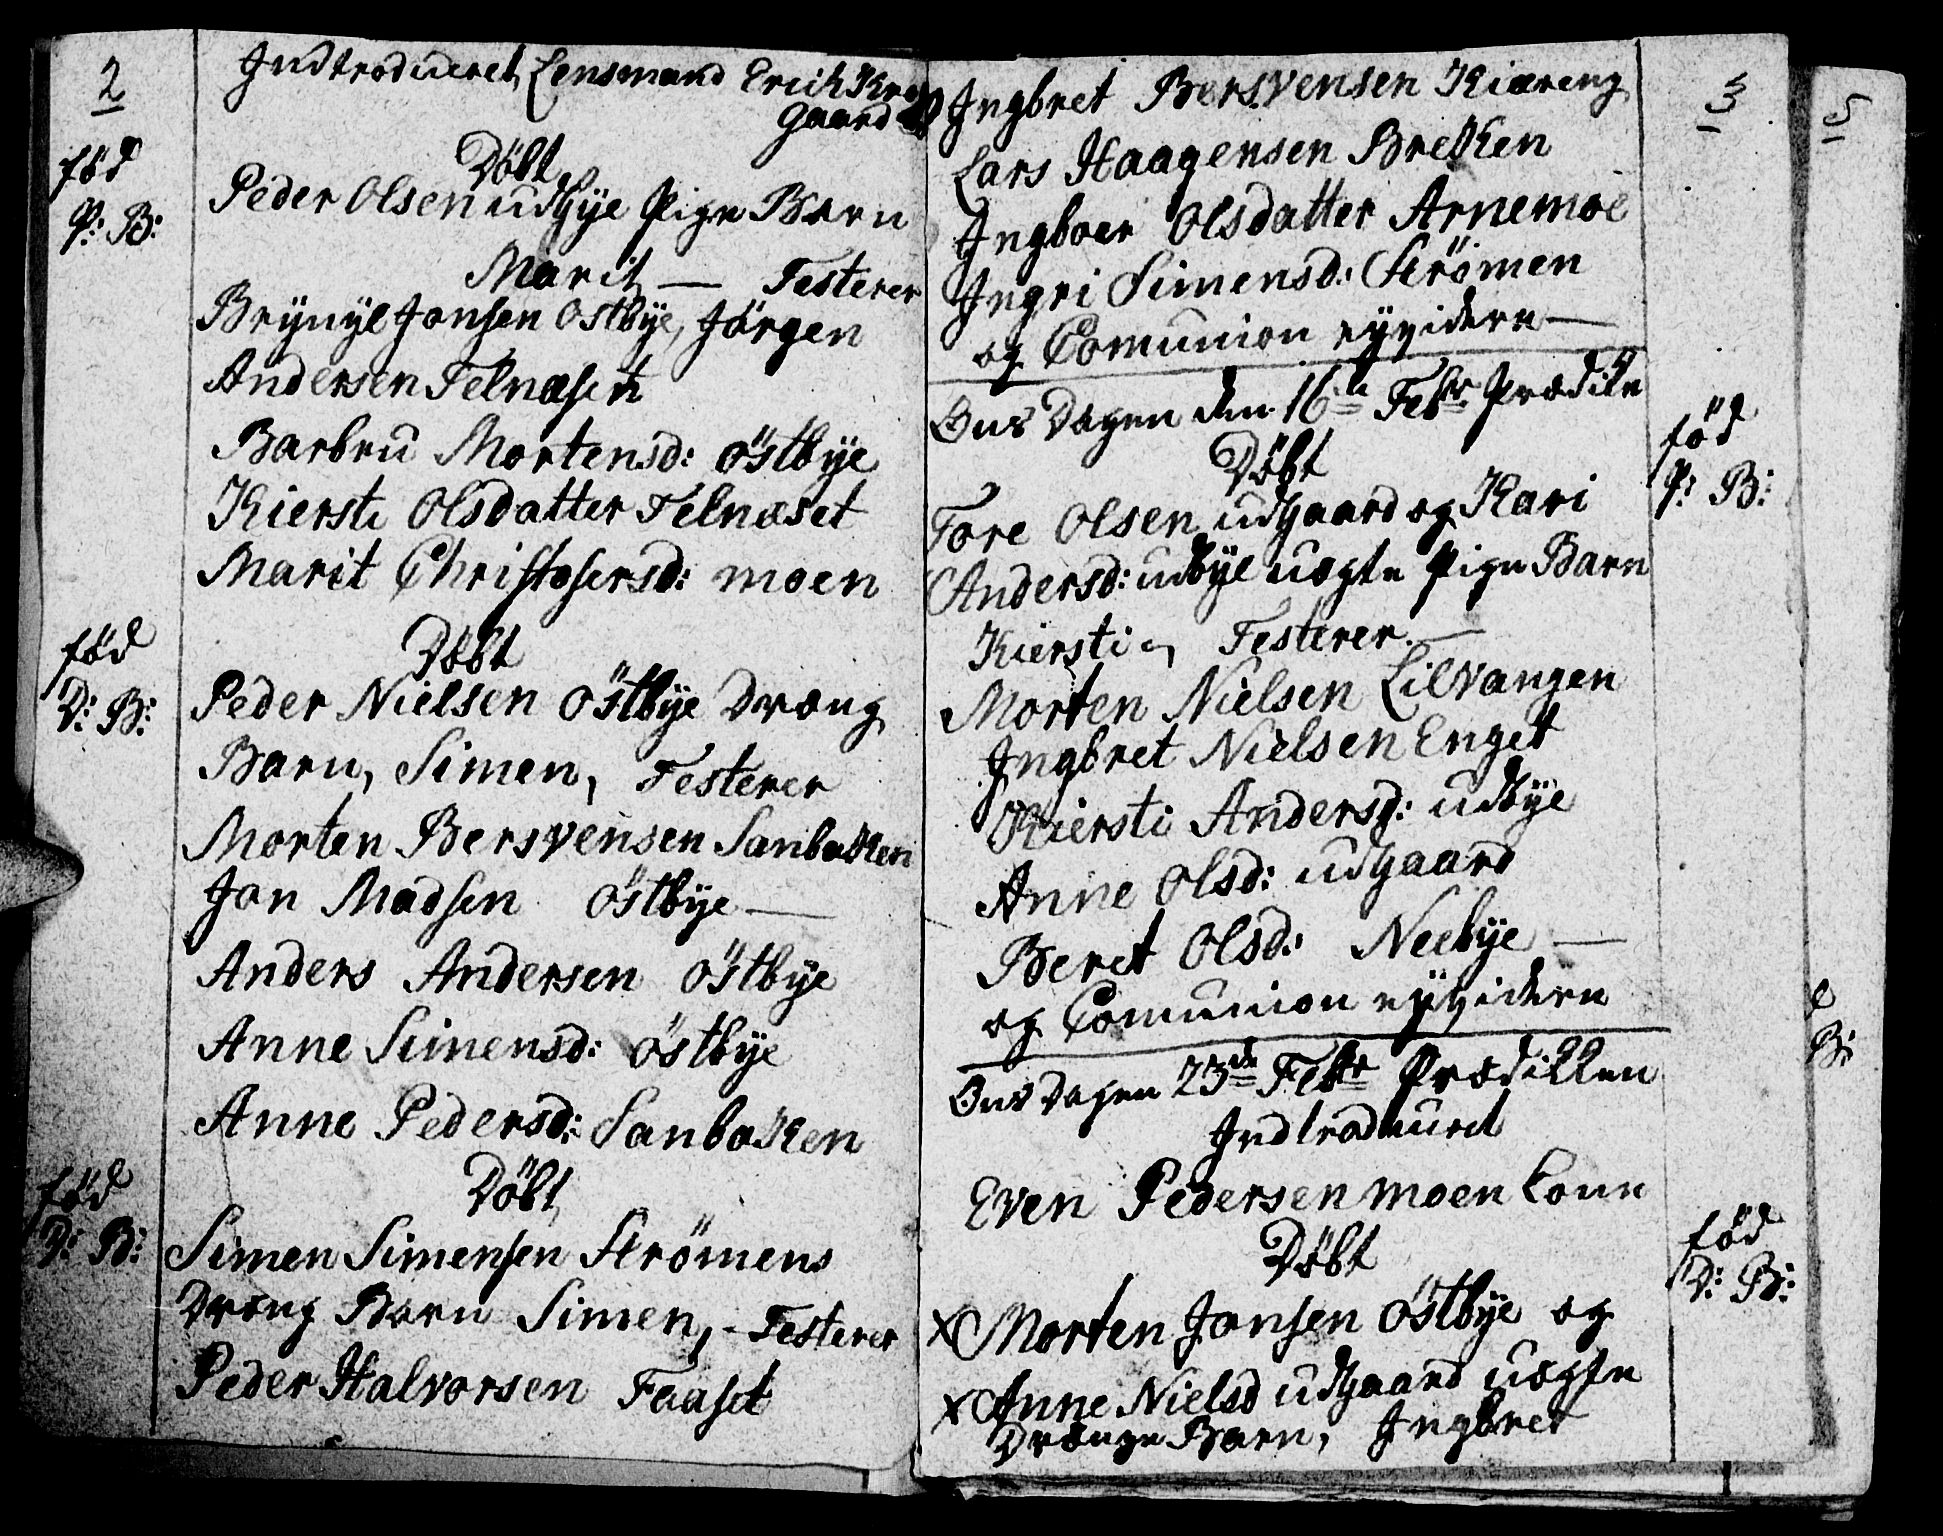 2
Indtroduceret, Lensmand Erich Kro
gaard
Døbt
fød
P: B:
Peder Olsen udbÿe Pige Barn
Marit, — Festerer
Brÿnÿel Jonsen Østbÿe, Jörgen
Andersen Felnæset
Barbru Mortensd: östbÿe
Kiersti Olsdatter Felnæset
Marit Christofersd: moen
Döbt
fød
D: B:
Peder Nielsen östbÿe Dreng
Barn, Simen, Festerer
Morten Bersvensen Sanbaken
Jon Madsen östbÿe —
Anders Andersen östbÿe
Anne Simensd: östbÿe
Anne Pedersd: Sanbaken
Döbt,
fød
D: B:
Simen Simensen Strömens
Dreng Barn Simen, - Festerer
Peder Halvorsen Faaset
3
Ingbret Bersvensen Kiæreng
Lars Haagensen Brekken
Ingboer Olsdatter Arnemoe
Ingri Simensd: Strömen
og Comunion —
Ons Dagen den 16de Febr. Prædike
Döbt
fød
P: B:
Tore Olsen udgaard og Kari
Andersd: udbÿe uægte Pige Barn
Kiersti, Festerer. —
Morten Nielsen Lilvangen
Ingbret Nielsen Enget
Kiersti Andersd: udbÿe
Anne Olsd: udgaard
Beret Olsd: Neebÿe —
og Comunion
Ons Dagen 23de Febr Prædikken
Indtroduceret
Even Pedersen moen Kone
Döbt
fød
D: B:
x Morten Jonsen östbÿe og
x Anne Nielsd udgaard uægte
Drenge Barn, Ingbret
5
B: